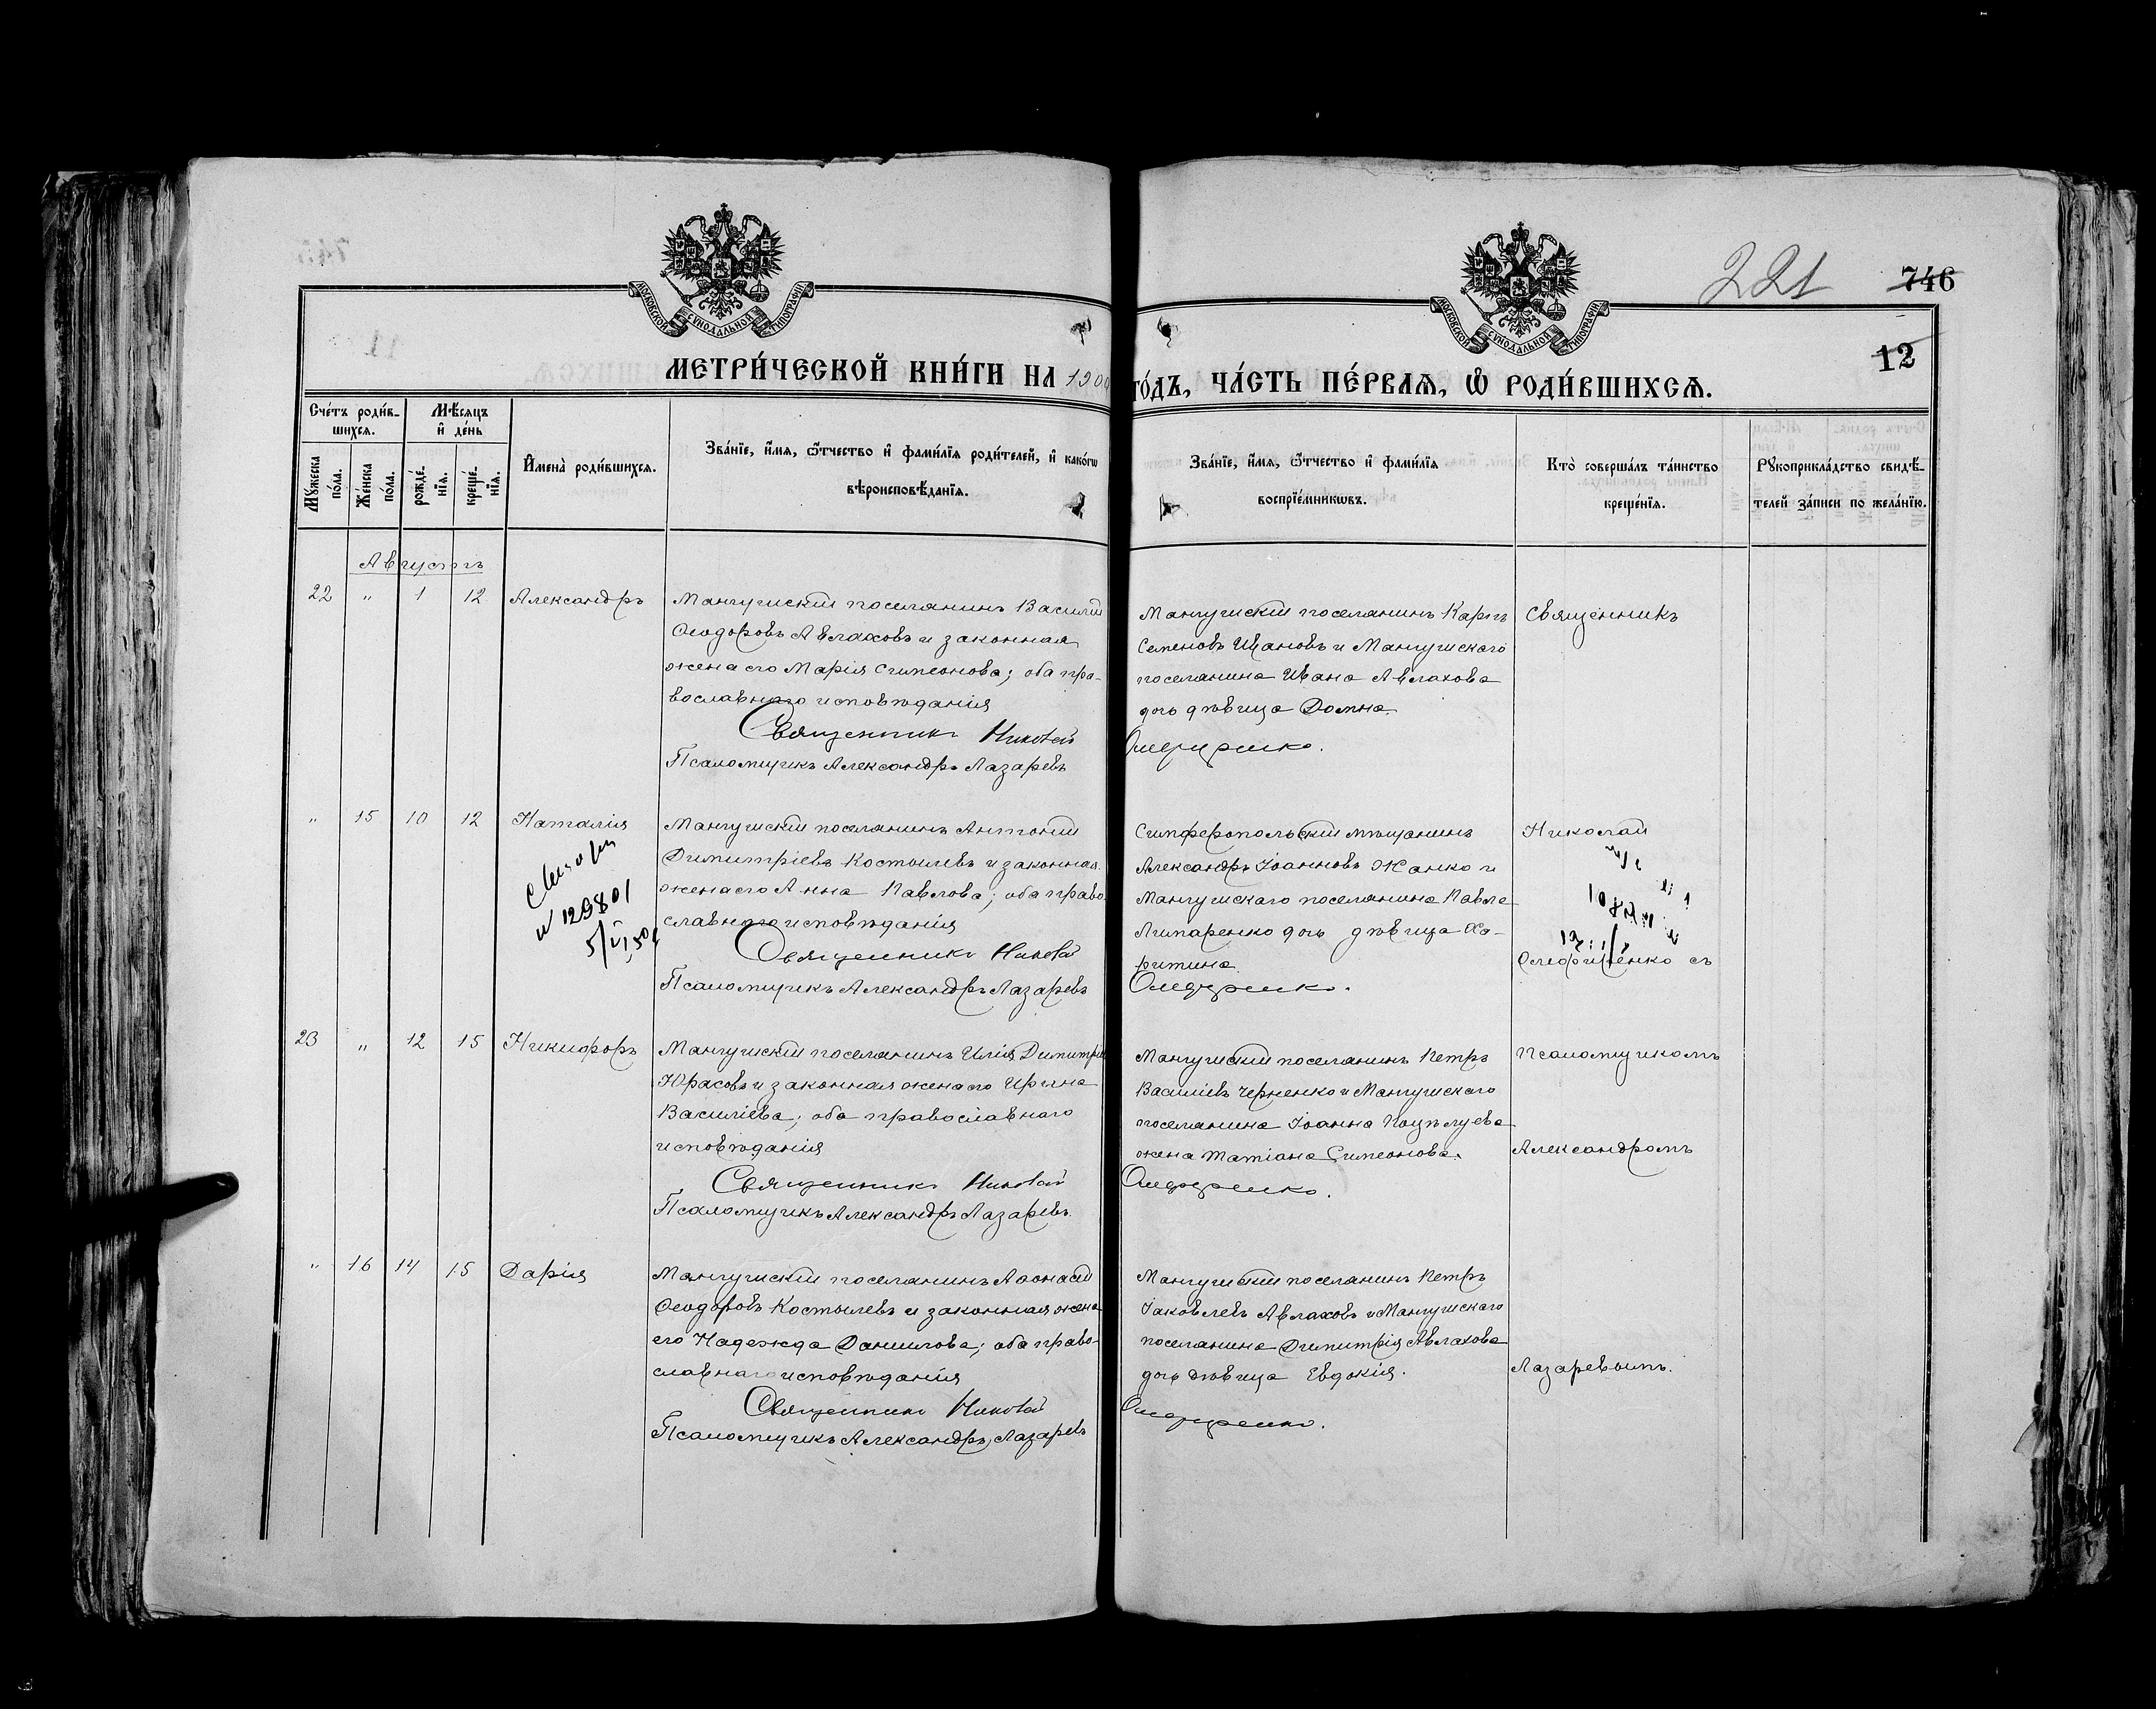 МОСКОВСКОЙ СУНОДАЛЬНОЙ ТИПОГРАФІИ
МОСКОВСКОЙ СУНОДАЛЬНОЙ ТИПОГРАФІИ
221 746
12
МЕТРИ́ЧЕСКОЙ КНИ́ГИ НА 1900
ГО́ДЪ, ЧА́СТЬ ПЕ́РВАѦ, Ѡ҆ РОДИ́ВШИХСѦ.
Сче́тъ роди́в-
шихсѧ.
Мѣ́сѧцъ
и҆ де́нь
Мꙋжеска
по́ла.
Же́нска
по́ла.
рожде́-
нїѧ.
креще́-
нїѧ.
И҆мена̀ роди́вшихсѧ.
Зва́нїе, и҆́мѧ, ѻ҆́тчество и҆ фами́лїѧ роди́телей, и҆ како́гѡ
вѣроисповѣ́данїѧ.
Зва́нїе, и҆́мѧ, ѻ҆́тчество и҆ фами́лїѧ
воспрїе́мникѡвъ.
Кто̀ соверша́лъ та́инство
креще́нїѧ.
Рꙋкоприкла́дство свидѣ́-
телей за́писи по жела́нїю.
Августъ
22 " 1 12 Александръ
Мангушскій поселянинъ Василій
Ѳеодоровъ Авлаховъ и законная
жена его Марія Симеонова; оба пра-
вославнаго исповѣданія
Священникъ Николай
Псаломщикъ Александръ Лазаревъ
Мангушскій поселянинъ Карпъ
Семеновъ Ивановъ и Мангушскаго
поселянина Ивана Авлахова
дочь дѣвица Домна.
Священникъ
" 15 10 12 Наталія
№ 12980
Мангушскій поселянинъ Антоній
Димитріевъ Костылевъ и законная
жена его Анна Павлова; оба право-
славнаго исповѣданія
Священникъ Николай
Псаломщикъ Александръ Лазаревъ
Симферопольскій мѣщанинъ
Александръ Іоанновъ Жанко и
Мангушскаго поселянина Павла
Липаренко дочь дѣвица Ха-
ритина.
Николай
съ
23 " 12 15 Никифоръ
Мангушскій поселянинъ Илія Димитріевъ
Юрасовъ и законная жена его Ирина
Василіева; оба православнаго
исповѣданія
Священникъ Николай
Псаломщикъ Александръ Лазаревъ.
Мангушскій поселянинъ Петръ
Василіевъ Черненко и Мангушскаго
поселянина Іоанна Поцѣлуева
жена Татіана Симеонова.
Псаломщикомъ
Александромъ
" 16 14 15 Дарія
Мангушскій поселянинъ Аѳонасій
Ѳеодоровъ Костылевъ и законная жена
его Надежда Даніилова; оба право-
славнаго исповѣданія
Священникъ Николай
Псаломщикъ Александръ Лазаревъ
Мангушскій поселянинъ Петръ
Іаковлевъ Авлаховъ и Мангушскаго
поселянина Димитрія Авлахова
дочь дѣвица Евдокія.
Лазаревымъ.